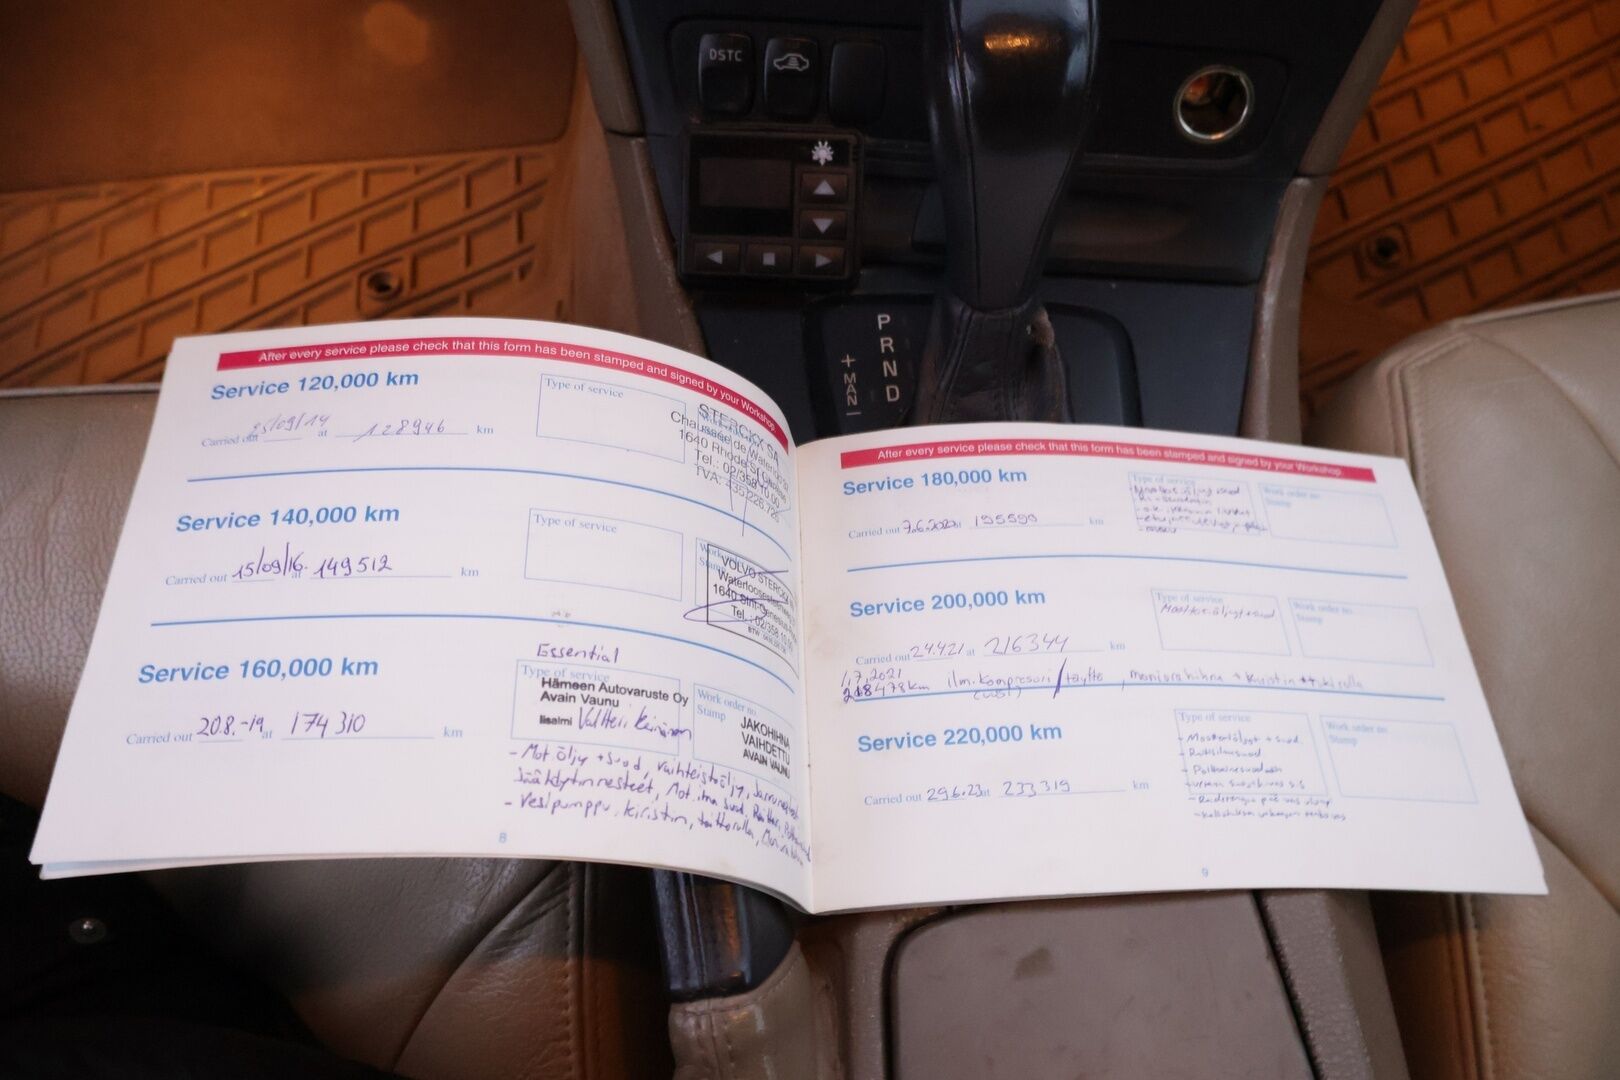 DSTC
P
R
N
D
+
MAN
−
After every service please check that this form has been stamped and signed by your Workshop.
Service 120,000 km
Carried out 25/09/14 at 128946 km
Type of service
STERCKX SA
Chaussée de Waterloo
1640 Rhode-St-Genèse
Tel.: 02/358 10 00
TVA:
Service 140,000 km
Carried out 15/09/16 at 149512 km
Type of service
Work order no
Stamp
VOLVO STERCKX
Waterloosesteenweg
1640 Sint-Genesius-Rode
Tel.: 02/358 10 00
Service 160,000 km
Carried out 20.8.-19 at 174310 km
Essential
Type of service
Hämeen Autovaruste Oy
Avain Vaunu
Iisalmi Valtteri
Work order no
Stamp
JAKOHIHNA
VAIHDETTU
AVAIN VAUNU
- Mot öljy + suod, vaihteistoöljy, Jarruneste
Jäähdytinnesteet, Mot.ilma suod.
- Vesipumppu, kiristin, taittorulla,
8
After every service please check that this form has been stamped and signed by your Workshop.
Service 180,000 km
Carried out 7.6.2020 at 195590 km
Type of service
Work order no
Stamp
Service 200,000 km
Carried out 24.4.21 at 216344 km
Type of service
Moottoriöljyt + suod
Work order no
Stamp
1.7.2021
218478km ilm.kompresori / täyttö, moniurahihna + kiristin +
(uusi)
Service 220,000 km
Carried out 29.6.23 at 233319 km
Type of service
- Moottoriöljyt + suod.
- Raitisilmasuod
- Polttoainesuodatin
Work order no
Stamp
9